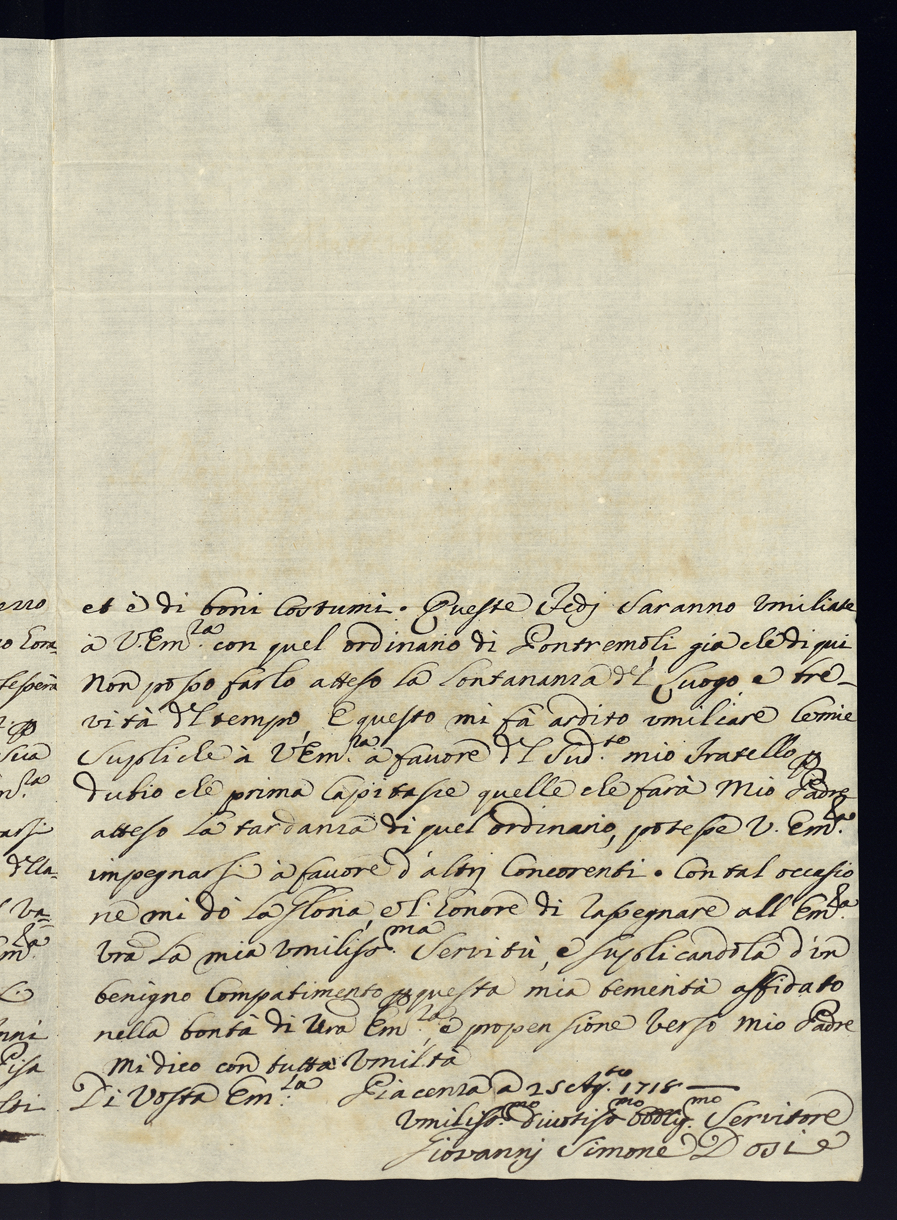 et è di boni Costumi. Queste Fedj Saranno Vmiliate
à V. Em.za con quel ordinario di Pontremoli già che di qui
Non posso farlo atteso la lontananza del Luogo, e bre-
vità del tempo. E questo mi fà ardito vmiliare le mie
Suppliche à V. Em.za à favore del Sud.to mio Fratello p
dubio che prima Capitasse quelle che farà Mio Padre
atteso la tardanza di quel ordinario, potesse V. Em.za
impegnarsi à favore d'altrj Concorenti. Con tal occasio
ne mi dò la Gloria, e l'honore di rapegnare all Em.za
Vra La mia Vmiliss.ma Servitù, e suplicandola d'un
benigno Compatimento p questa mia temerità affidato
nella bontà di Vra Em.za e propensione verso mio Padre
mi dico con tutta Vmiltà
Di Vostra Em.za Piacenza a 2 Sett. 1718
Vmiliss.mo divotiss.mo obblig.mo Servitore
Giovannj Simone Dosi
rzo
p
Sua
m.za
arsi
della=
Va=
m.za
nni
Pisa